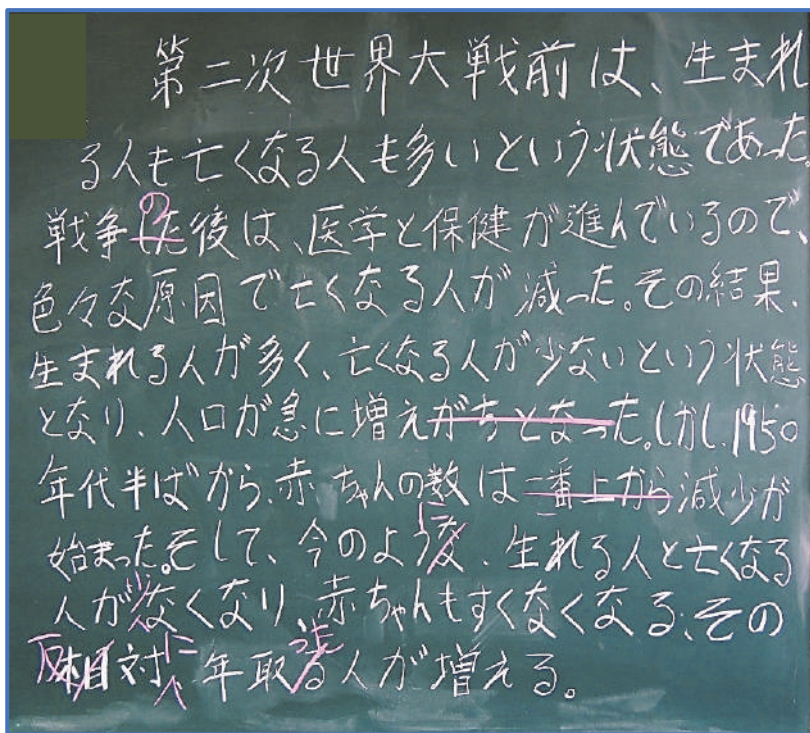 第二次世界大戦前は、生まれ
る人も亡くなる人も多いという状態であった。
戦争のした後は、医学と保健が進んでいるので、
色々な原因で亡くなる人が減った。その結果、
生まれる人が多く、亡くなる人が少ないという状態
となり、人口が急に増えがちとなった。しかし、1950
年代半ばから、赤ちゃんの数は一番上から減少が
始まった。そして、今のようなに、生れる人と亡くなる
人が少なくなり、赤ちゃんもすくなくなる、その
反相対に年取るった人が増える。